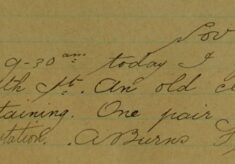 Nov
9-30 am today I
th St. An old c
taining. One pair
tation. A Burns